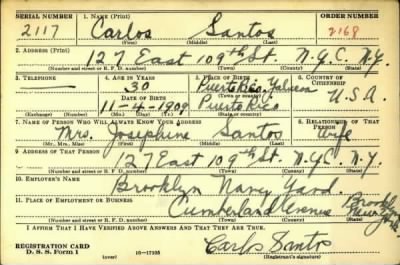 SERIAL NUMBER 1. NAME (Print) ORDER NUMBER
2117 Carlos Santos 2168
(First) (Middle) (Last)
2. ADDRESS (Print)
127 East 109th St. N.Y.C. N.Y.
(Number and street or R. F. D. number) (Town) (County) (State)
3. TELEPHONE 4. AGE IN YEARS 5. PLACE OF BIRTH 6. COUNTRY OF CITIZENSHIP
30 Puerto Rico
DATE OF BIRTH (Town or county) U.S.A.
11-4-1909 Puerto Rico
(Exchange) (Number) (Mo.) (Day) (Yr.) (State or country)
7. NAME OF PERSON WHO WILL ALWAYS KNOW YOUR ADDRESS 8. RELATIONSHIP OF THAT PERSON
Mrs. Josephine Santos Wife
(Mr., Mrs., Miss) (First) (Middle) (Last)
9. ADDRESS OF THAT PERSON
127 East 109th St. N.Y.C. N.Y.
(Number and street or R. F. D. number) (Town) (County) (State)
10. EMPLOYER'S NAME
Brooklyn Navy Yard.
11. PLACE OF EMPLOYMENT OR BUSINESS
Cumberland Avenue Brooklyn New York
(Number and street or R. F. D. number) (Town) (County) (State)
I AFFIRM THAT I HAVE VERIFIED ABOVE ANSWERS AND THAT THEY ARE TRUE.
REGISTRATION CARD
D. S. S. Form 1 (over) 16-17105 Carlos Santos
(Registrant's signature)